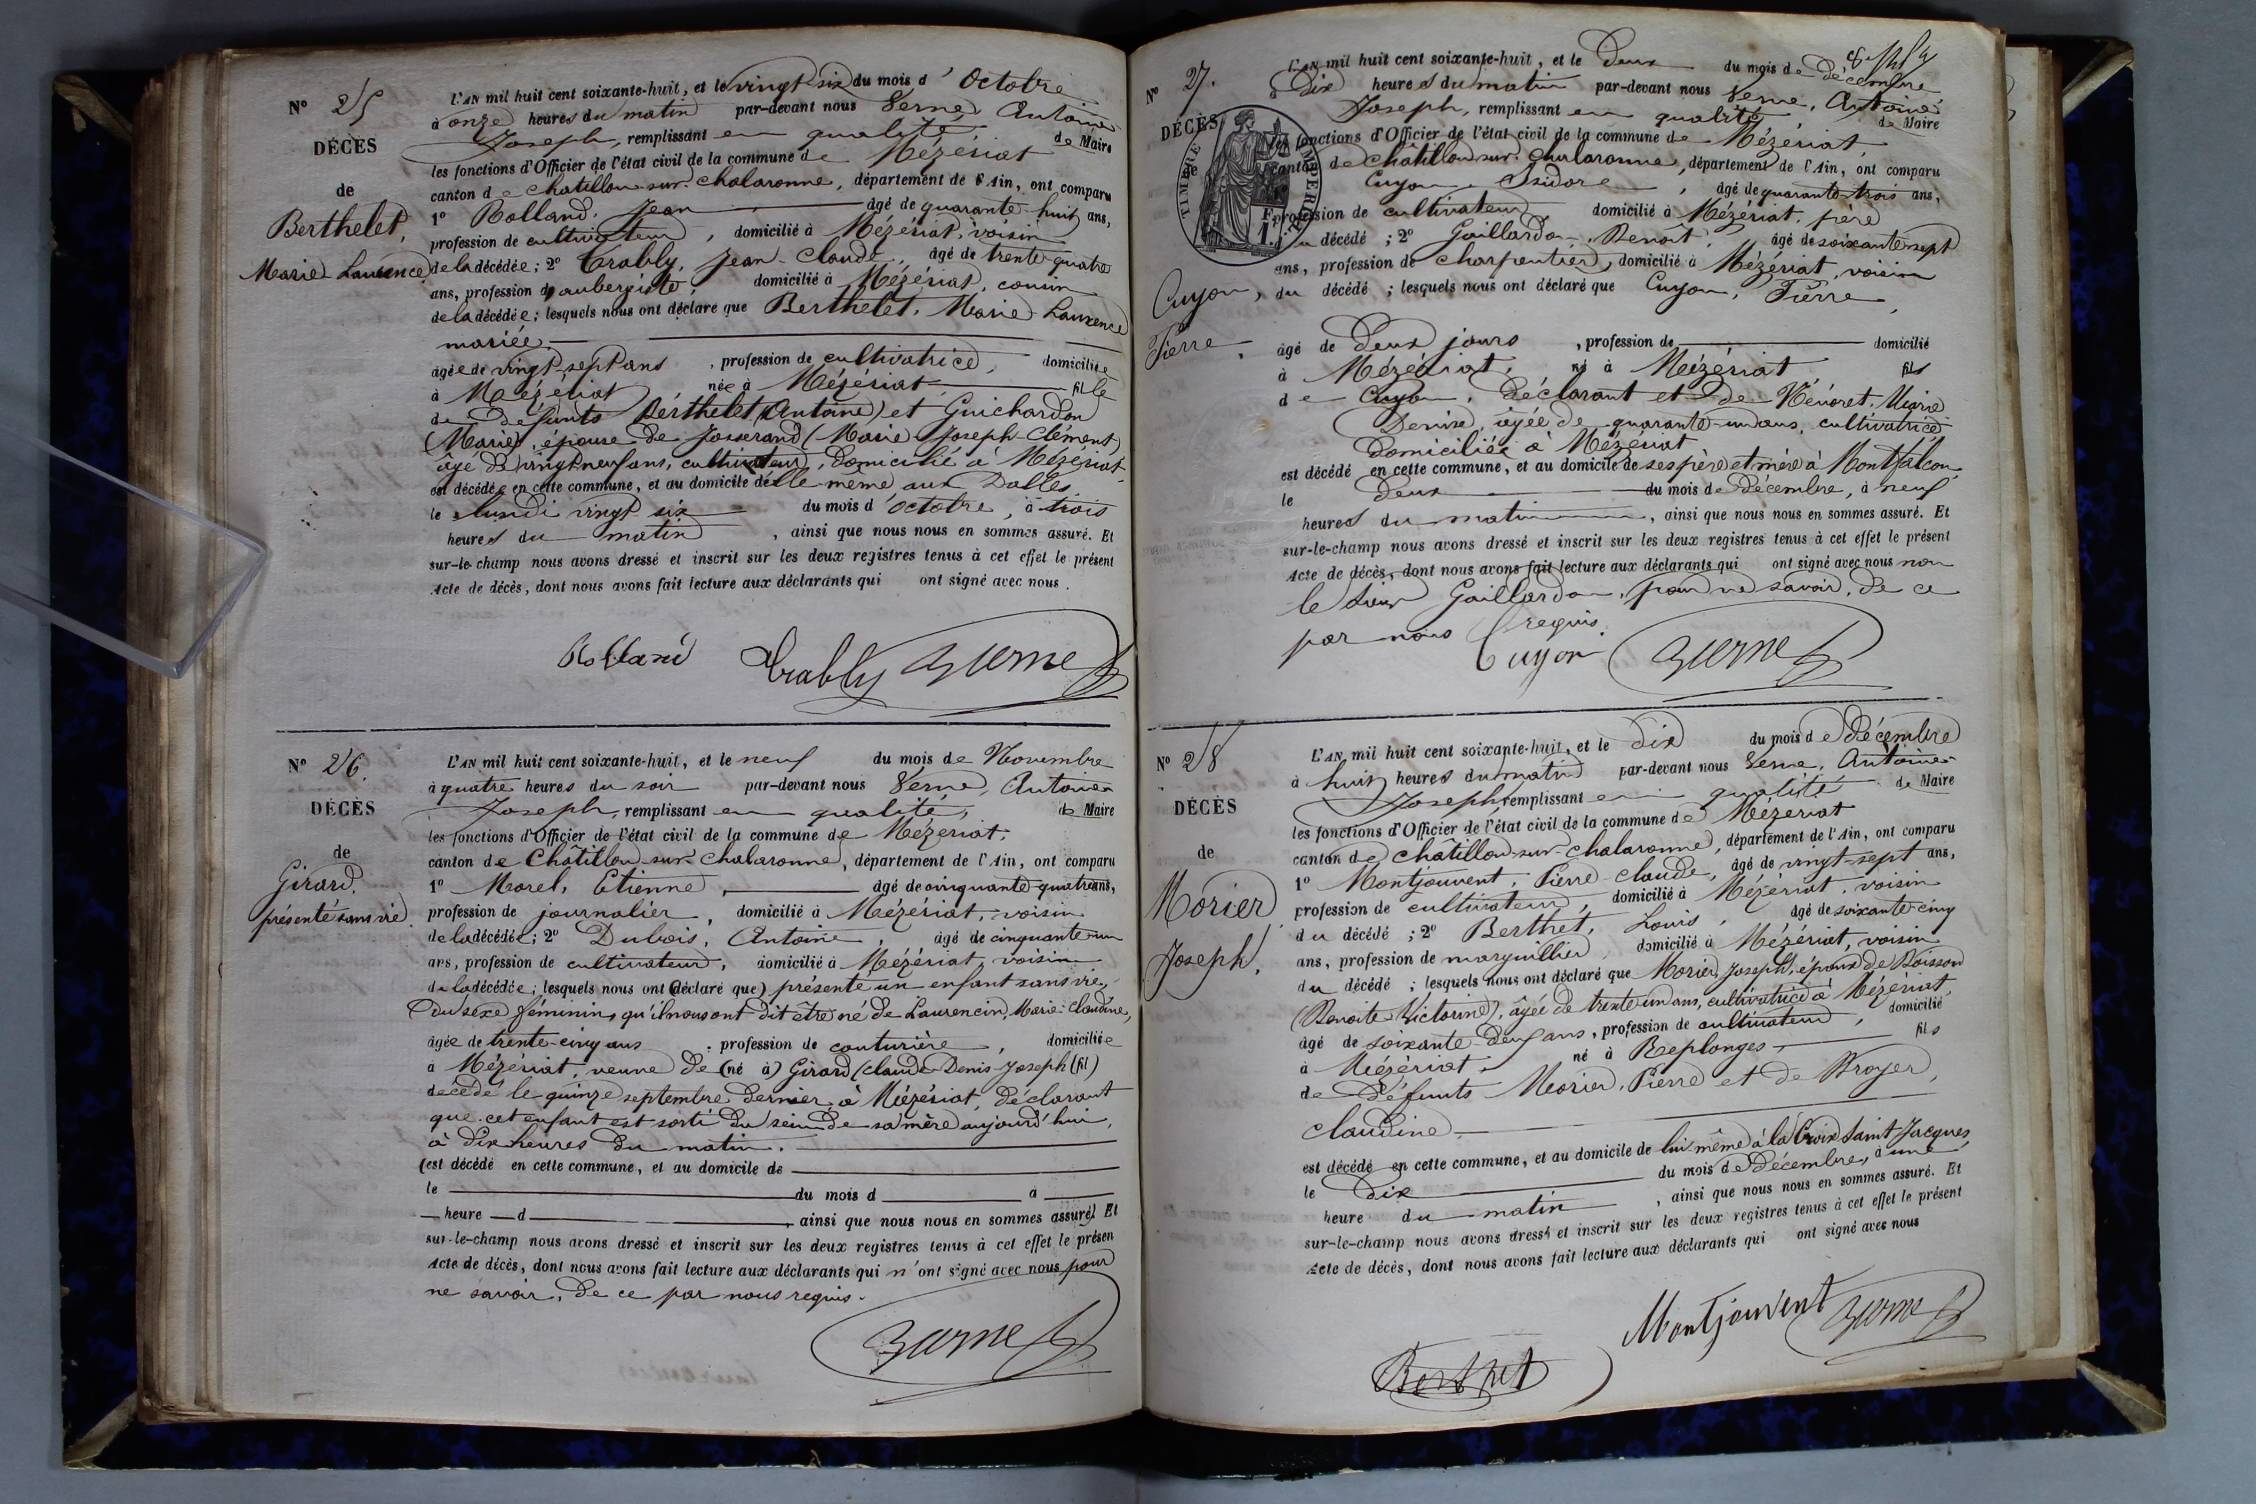 N° 25
DÉCÈS
de
Berthelet,
Marie-Laurence
L'AN mil huit cent soixante-huit, et le vingt six du mois d'Octobre
à onze heures du matin par-devant nous Verne, Antoine
Joseph, remplissant en qualité de Maire
les fonctions d'Officier de l'état civil de la commune de Mézériat
canton de Chatillon-sur-Chalaronne, département de l'Ain, ont comparu
1° Rolland, Jean âgé de quarante-huit ans,
profession de cultivateur, domicilié à Mézériat, voisin
de la décédée; 2° Trably, Jean-Claude, âgé de trente-quatre
ans, profession d'aubergiste, domicilié à Mézériat, cousin
de la décédée; lesquels nous ont déclaré que Berthelet, Marie-Laurence
mariée
âgée de vingt-sept ans, profession de cultivatrice, domiciliée
à Mézériat, née à Mézériat fille
de défunts Berthelet (Antoine) et Guichardon
(Marie), épouse de Josserand (Marie-Joseph-Clément)
âgé de vingt neuf ans, cultivateur, domicilié à Mézériat,
est décédée en cette commune, et au domicile d'elle-même aux Dalles
le lundi vingt-six du mois d'octobre, à trois
heures du matin, ainsi que nous nous en sommes assuré. Et
sur-le-champ nous avons dressé et inscrit sur les deux registres tenus à cet effet le présent
Acte de décès, dont nous avons fait lecture aux déclarants qui ont signé avec nous.
Rolland Trably Verne
N° 26.
DÉCÈS
de
Girard,
présenté sans vie
L'AN mil huit cent soixante-huit, et le neuf du mois de Novembre
à quatre heures du soir par-devant nous Verne, Antoine
Joseph, remplissant en qualité, de Maire
les fonctions d'Officier de l'état civil de la commune de Mézériat,
canton de Châtillon-sur-Chalaronne, département de l'Ain, ont comparu
1° Morel, Etienne, âgé de cinquante-quatre ans,
profession de journalier, domicilié à Mézériat, voisin
de la décédée; 2° Dubois, Antoine, âgé de cinquante-un
ans, profession de cultivateur, domicilié à Mézériat, voisin
de la décédée; lesquels nous ont (déclaré que) présenté un enfant sans vie,
du sexe féminin, qu'ils nous ont dit être né de Laurencin, Marie-Claudine,
âgée de trente-cinq ans, profession de couturière, domiciliée
à Mézériat, veuve de (né à) Girard (Claude-Denis-Joseph (fil)
décédé le quinze septembre dernier à Mézériat, déclarant
que cet enfant est sorti du sein de sa mère aujourd'hui,
à dix heures du matin.
(est décédé en cette commune, et au domicile de
le du mois d à
heure d, ainsi que nous nous en sommes assuré) Et
sur-le-champ nous avons dressé et inscrit sur les deux registres tenus à cet effet le présen
Acte de décès, dont nous avons fait lecture aux déclarants qui n'ont signé avec nous pour
ne savoir, de ce par nous requis.
Verne
N° 27.
DÉCÈS
de
TIMBRE IMPÉRIAL
Cuyon,
Pierre,
L'AN mil huit cent soixante-huit, et le deux du mois de décembre
à dix heures du matin par-devant nous Verne, Antoine
Joseph, remplissant en qualité de Maire
les fonctions d'Officier de l'état civil de la commune de Mézériat,
canton de Châtillon-sur-Chalaronne, département de l'Ain, ont comparu
Cuyon, Isidore, âgé de quarante-trois ans,
profession de cultivateur, domicilié à Mézériat, père
du décédé; 2° Gaillardon, Benoît, âgé de soixante-sept
ans, profession de charpentier, domicilié à Mézériat, voisin
du décédé; lesquels nous ont déclaré que Cuyon, Pierre,
âgé de deux jours, profession de domicilié
à Mézériat, né à Mézériat fils
de Cuyon, déclarant et de Vénoret, Marie
Denise, âgée de quarante-un ans, cultivatrice
domiciliée à Mézériat
est décédé en cette commune, et au domicile de ses père et mère à Montfalcon
le deux du mois de décembre, à neuf
heures du matin, ainsi que nous nous en sommes assuré. Et
sur-le-champ nous avons dressé et inscrit sur les deux registres tenus à cet effet le présent
Acte de décès, dont nous avons fait lecture aux déclarants qui ont signé avec nous non
le sieur Gaillardon, pour ne savoir, de ce
par nous requis.
Cuyon Verne
N° 28
DÉCÈS
de
Morier,
Joseph,
L'AN mil huit cent soixante-huit, et le dix du mois de décembre
à huit heures du matin par-devant nous Verne, Antoine
Joseph, remplissant en qualité de Maire
les fonctions d'Officier de l'état civil de la commune de Mézériat
canton de Châtillon-sur-Chalaronne, département de l'Ain, ont comparu
1° Montjouvent, Pierre-Claude, âgé de vingt-sept ans,
profession de cultivateur, domicilié à Mézériat, voisin
du décédé; 2° Berthet, Louis, âgé de soixante-cinq
ans, profession de marguillier, domicilié à Mézériat, voisin
du décédé; lesquels nous ont déclaré que Morier, Joseph, époux de Boisson
(Benoite Victorine), âgée de trente-un ans, cultivatrice à Mézériat,
âgé de soixante-deux ans, profession de cultivateur, domicilié
à Mézériat, né à Replonges, fils
de défunts Morier, Pierre et de Broyer,
Claudine.
est décédé en cette commune, et au domicile de lui-même à la Croix Saint-Jacques,
le dix du mois de décembre, à une
heure du matin, ainsi que nous nous en sommes assuré. Et
sur-le-champ nous avons dressé et inscrit sur les deux registres tenus à cet effet le présent
Acte de décès, dont nous avons fait lecture aux déclarants qui ont signé avec nous
Montjouvent Verne
Berthet